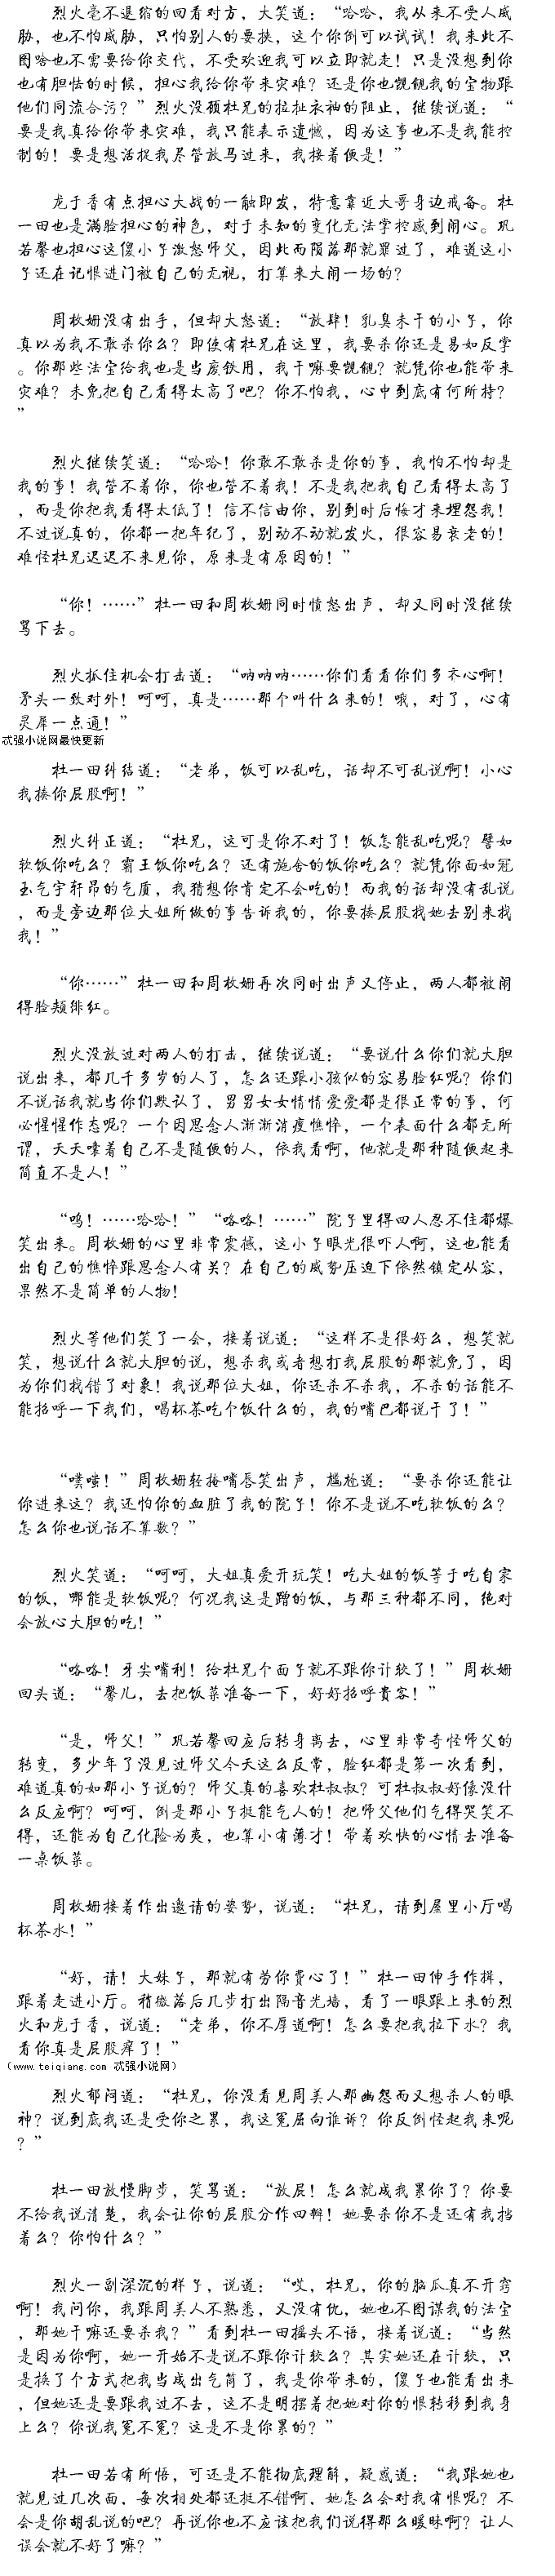 烈火毫不退缩的回看对方，大笑道：“哈哈，我从来不受人威
胁，也不怕威胁，只怕别人的要挟，这个你倒可以试试！我来此不
图啥也不需要给你交代，不受欢迎我可以立即就走！只是没想到你
也有胆怯的时候，担心我给你带来灾难？还是你也觊觎我的宝物跟
他们同流合污？”烈火没顾杜兄的拉扯衣袖的阻止，继续说道：“
要是我真给你带来灾难，我只能表示遗憾，因为这事也不是我能控
制的！要是想活捉我尽管放马过来，我接着便是！”
龙于香有点担心大战的一触即发，特意靠近大哥身边戒备。杜
一田也是满脸担心的神色，对于未知的变化无法掌控感到闹心。巩
若馨也担心这傻小子激怒师父，因此而陨落那就罪过了，难道这小
子还在记恨进门被自己的无视，打算来大闹一场的？
周枚姗没有出手，但却大怒道：“放肆！乳臭未干的小子，你
真以为我不敢杀你么？即使有杜兄在这里，我要杀你还是易如反掌
。你那些法宝给我也是当废铁用，我干嘛要觊觎？就凭你也能带来
灾难？未免把自己看得太高了吧？你不怕我，心中到底有何所持？
”
烈火继续笑道：“哈哈！你敢不敢杀是你的事，我怕不怕却是
我的事！我管不着你，你也管不着我！不是我把我自己看得太高了
，而是你把我看得太低了！信不信由你，别到时后悔才来埋怨我！
不过说真的，你都一把年纪了，别动不动就发火，很容易衰老的！
难怪杜兄迟迟不来见你，原来是有原因的！”
“你！……”杜一田和周枚姗同时愤怒出声，却又同时没继续
骂下去。
烈火抓住机会打击道：“呐呐呐……你们看看你们多齐心啊！
矛头一致对外！呵呵，真是……那个叫什么来的！哦，对了，心有
灵犀一点通！”
忒强小说网最快更新
杜一田纠结道：“老弟，饭可以乱吃，话却不可乱说啊！小心
我揍你屁股啊！”
烈火纠正道：“杜兄，这可是你不对了！饭怎能乱吃呢？譬如
软饭你吃么？霸王饭你吃么？还有施舍的饭你吃么？就凭你面如冠
玉气宇轩昂的气质，我猜想你肯定不会吃的！而我的话却没有乱说
，而是旁边那位大姐所做的事告诉我的，你要揍屁股找她去别来找
我！”
“你……”杜一田和周枚姗再次同时出声又停止，两人都被闹
得脸颊绯红。
烈火没放过对两人的打击，继续说道：“要说什么你们就大胆
说出来，都几千多岁的人了，怎么还跟小孩似的容易脸红呢？你们
不说话我就当你们默认了，男男女女情情爱爱都是很正常的事，何
必惺惺作态呢？一个因思念人渐渐消瘦憔悴，一个表面什么都无所
谓，天天嚷着自己不是随便的人，依我看啊，他就是那种随便起来
简直不是人！”
“呜！……哈哈！”“咯咯！……”院子里得四人忍不住都爆
笑出来。周枚姗的心里非常震撼，这小子眼光很吓人啊，这也能看
出自己的憔悴跟思念人有关？在自己的威势压迫下依然镇定从容，
果然不是简单的人物！
烈火等他们笑了一会，接着说道：“这样不是很好么，想笑就
笑，想说什么就大胆的说，想杀我或者想打我屁股的那就免了，因
为你们找错了对象！我说那位大姐，你还杀不杀我，不杀的话能不
能招呼一下我们，喝杯茶吃个饭什么的，我的嘴巴都说干了！”
“噗嗤！”周枚姗轻掩嘴唇笑出声，尴尬道：“要杀你还能让
你进来这？我还怕你的血脏了我的院子！你不是说不吃软饭的么？
怎么你也说话不算数？”
烈火笑道：“呵呵，大姐真爱开玩笑！吃大姐的饭等于吃自家
的饭，哪能是软饭呢？何况我这是蹭的饭，与那三种都不同，绝对
会放心大胆的吃！”
“咯咯！牙尖嘴利！给杜兄个面子就不跟你计较了！”周枚姗
回头道：“馨儿，去把饭菜准备一下，好好招呼贵客！”
“是，师父！”巩若馨回应后转身离去，心里非常奇怪师父的
转变，多少年了没见过师父今天这么反常，脸红都是第一次看到，
难道真的如那小子说的？师父真的喜欢杜叔叔？可杜叔叔好像没什
么反应啊？呵呵，倒是那小子挺能气人的！把师父他们气得哭笑不
得，还能为自己化险为夷，也算小有薄才！带着欢快的心情去准备
一桌饭菜。
周枚姗接着作出邀请的姿势，说道：“杜兄，请到屋里小厅喝
杯茶水！”
“好，请！大妹子，那就有劳你费心了！”杜一田伸手作揖，
跟着走进小厅。稍微落后几步打出隔音光墙，看了一眼跟上来的烈
火和龙于香，说道：“老弟，你不厚道啊！怎么要把我拉下水？我
看你真是屁股痒了！”
（www.teiqiang.com 忒强小说网）
烈火郁闷道：“杜兄，你没看见周美人那幽怨而又想杀人的眼
神？说到底我还是受你之累，我这冤屈向谁诉？你反倒怪起我来呢
？”
杜一田放慢脚步，笑骂道：“放屁！怎么就成我累你了？你要
不给我说清楚，我会让你的屁股分作四瓣！她要杀你不是还有我挡
着么？你怕什么？”
烈火一副深沉的样子，说道：“哎，杜兄，你的脑瓜真不开窍
啊！我问你，我跟周美人不熟悉，又没有仇，她也不图谋我的法宝
，那她干嘛还要杀我？”看到杜一田摇头不语，接着说道：“当然
是因为你啊，她一开始不是说不跟你计较么？其实她还在计较，只
是换了个方式把我当成出气筒了，我是你带来的，傻子也能看出来
，但她还是要跟我过不去，这不是明摆着把她对你的恨转移到我身
上么？你说我冤不冤？这是不是你累的？”
杜一田若有所悟，可还是不能彻底理解，疑惑道：“我跟她也
就见过几次面，每次相处都还挺不错啊，她怎么会对我有恨呢？不
会是你胡乱说的吧？再说你也不应该把我们说得那么暧昧啊？让人
误会就不好了嘛？”